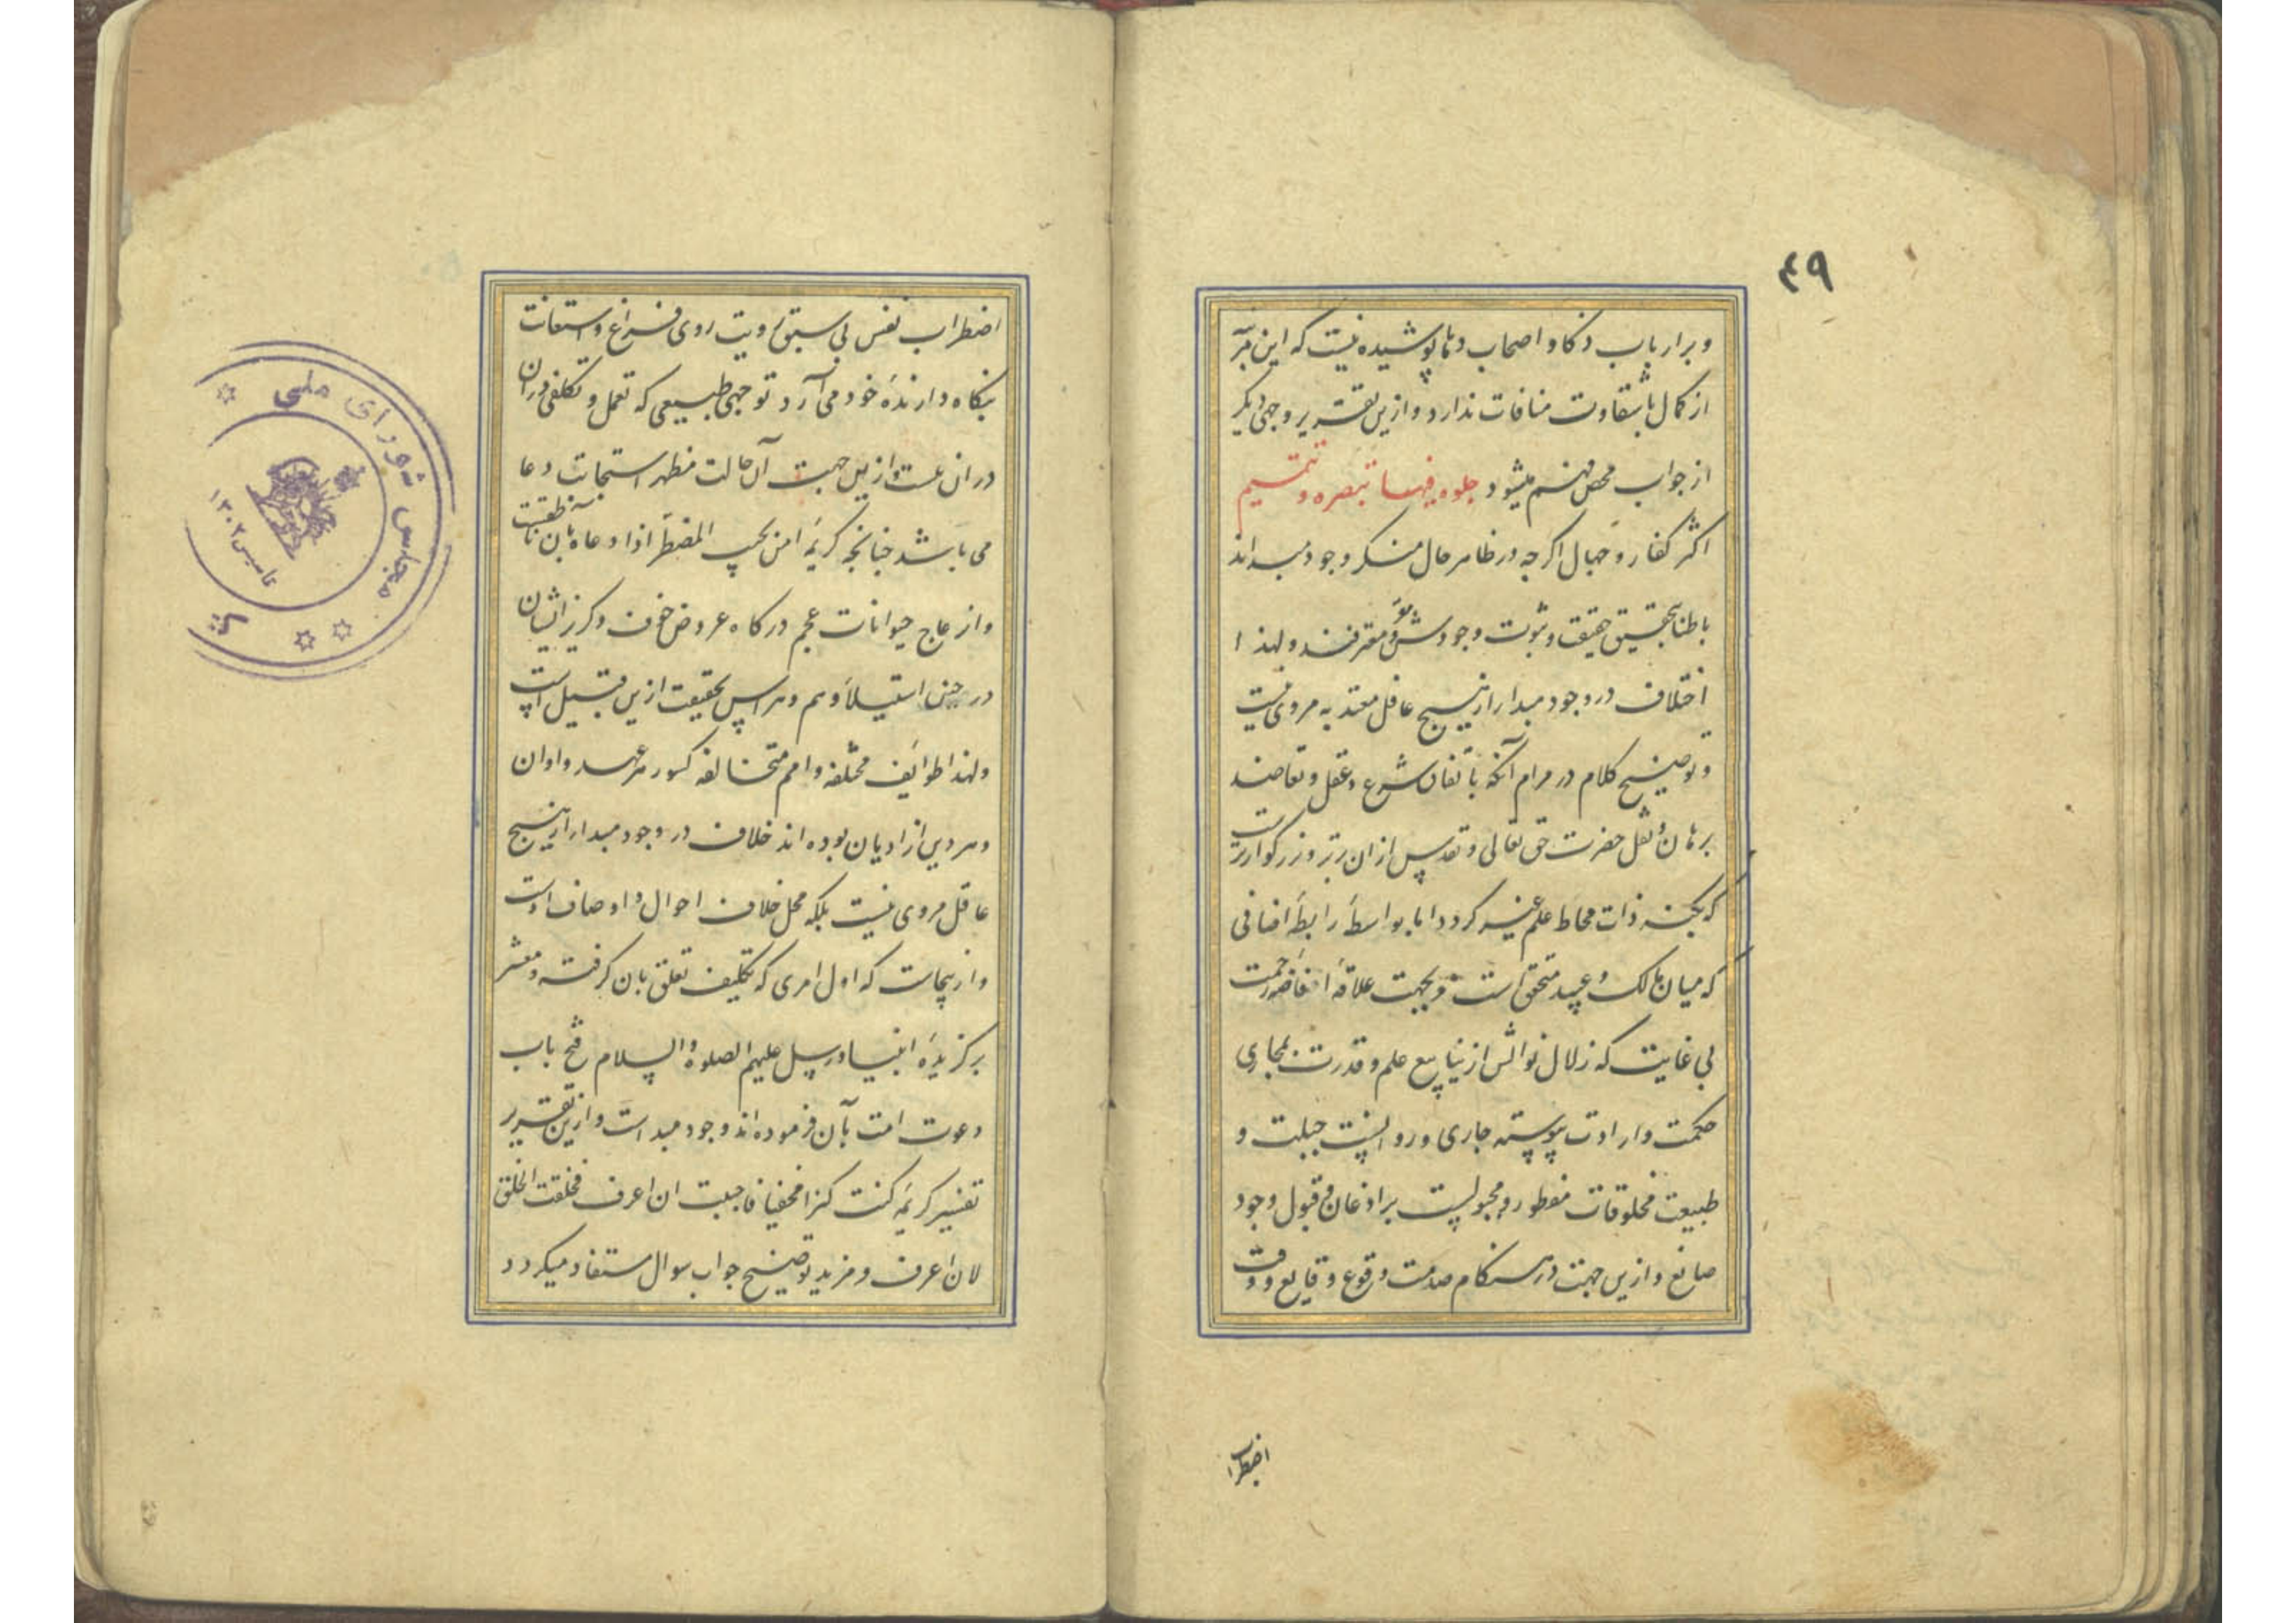 ۴۹
و بر ارباب ذکا و اصحاب دها پوشیده نیست که این مرتبه
از کمال با شقاوت منافات ندارد و ازین تقریر وجهی دیگر
از جواب محض فهم میشود جلوه فیها تبصره و تتمیم
اکثر کفار و جهال اگر چه در ظاهر حال منکر وجود مبداء اند
باطنا بتحقیق حقیقت و ثبوت وجودش مقر و معترفند و لهذا
اختلاف در وجود مبدا از هیچ عاقل معتد به مروی نیست
و توضیح کلام در مرام آنکه باتفاق شرع و عقل و تعاضد
برهان و نقل حضرت حق تعالی و تقدس از ان برتر و بزرگوارترست
که بکنه ذات محاط علم غیر گردد اما بواسطهٔ رابطهٔ اضافی
که میان مالک و عبید متحقق است و بجهت علاقهٔ افاضهٔ رحمت
بی غایت که زلال نوالش از ینابیع علم و قدرت بمجاری
حکمت و ارادت پیوسته جاری و روانست جبلت و
طبیعت مخلوقات مفطور و مجبولست بر اذعان و قبول وجود
صانع و ازین جهت در هنگام صدمت وقوع وقایع و وقت
اضطراب
اضطراب نفس بی سبق رویت روی فزع و استغاثت
بنگاه دارندهٔ خود می آرد توجهی طبیعی که تعمل و تکلفی در ان
در ان نیست و ازین جهت آن حالت مظهر استجابت دعا
می باشد چنانچه کریمهٔ امن یجیب المضطر اذا دعاه بان ناطقست
و انزعاج حیوانات عجم در گاه عروض خوف و گریز ایشان
در حین استیلاء وهم و هراس بحقیقت ازین قبیل است
و لهذا طوایف مختلفه و امم متخالفه که در هر عهد و اوان
و هر دین از ادیان بوده اند خلاف در وجود مبدا از هیچ
عاقل مروی نیست بلکه محل خلاف احوال و اوصاف اوست
و ازینجاست که اول امری که تکلیف تعلق بان گرفته و معشر
برگزیدهٔ انبیا و رسل علیهم الصلوة و السلام فتح باب
دعوت امت بآن فرموده اند وجود مبداست و ازین تقریر
تفسیر کریمهٔ کنت کنزا مخفیا فاحببت ان اعرف فخلقت الخلق
لان اعرف و مزید توضیح جواب سوال مستفاد میگردد
مجلس شورای ملی
تاسیس ۱۳۰۲